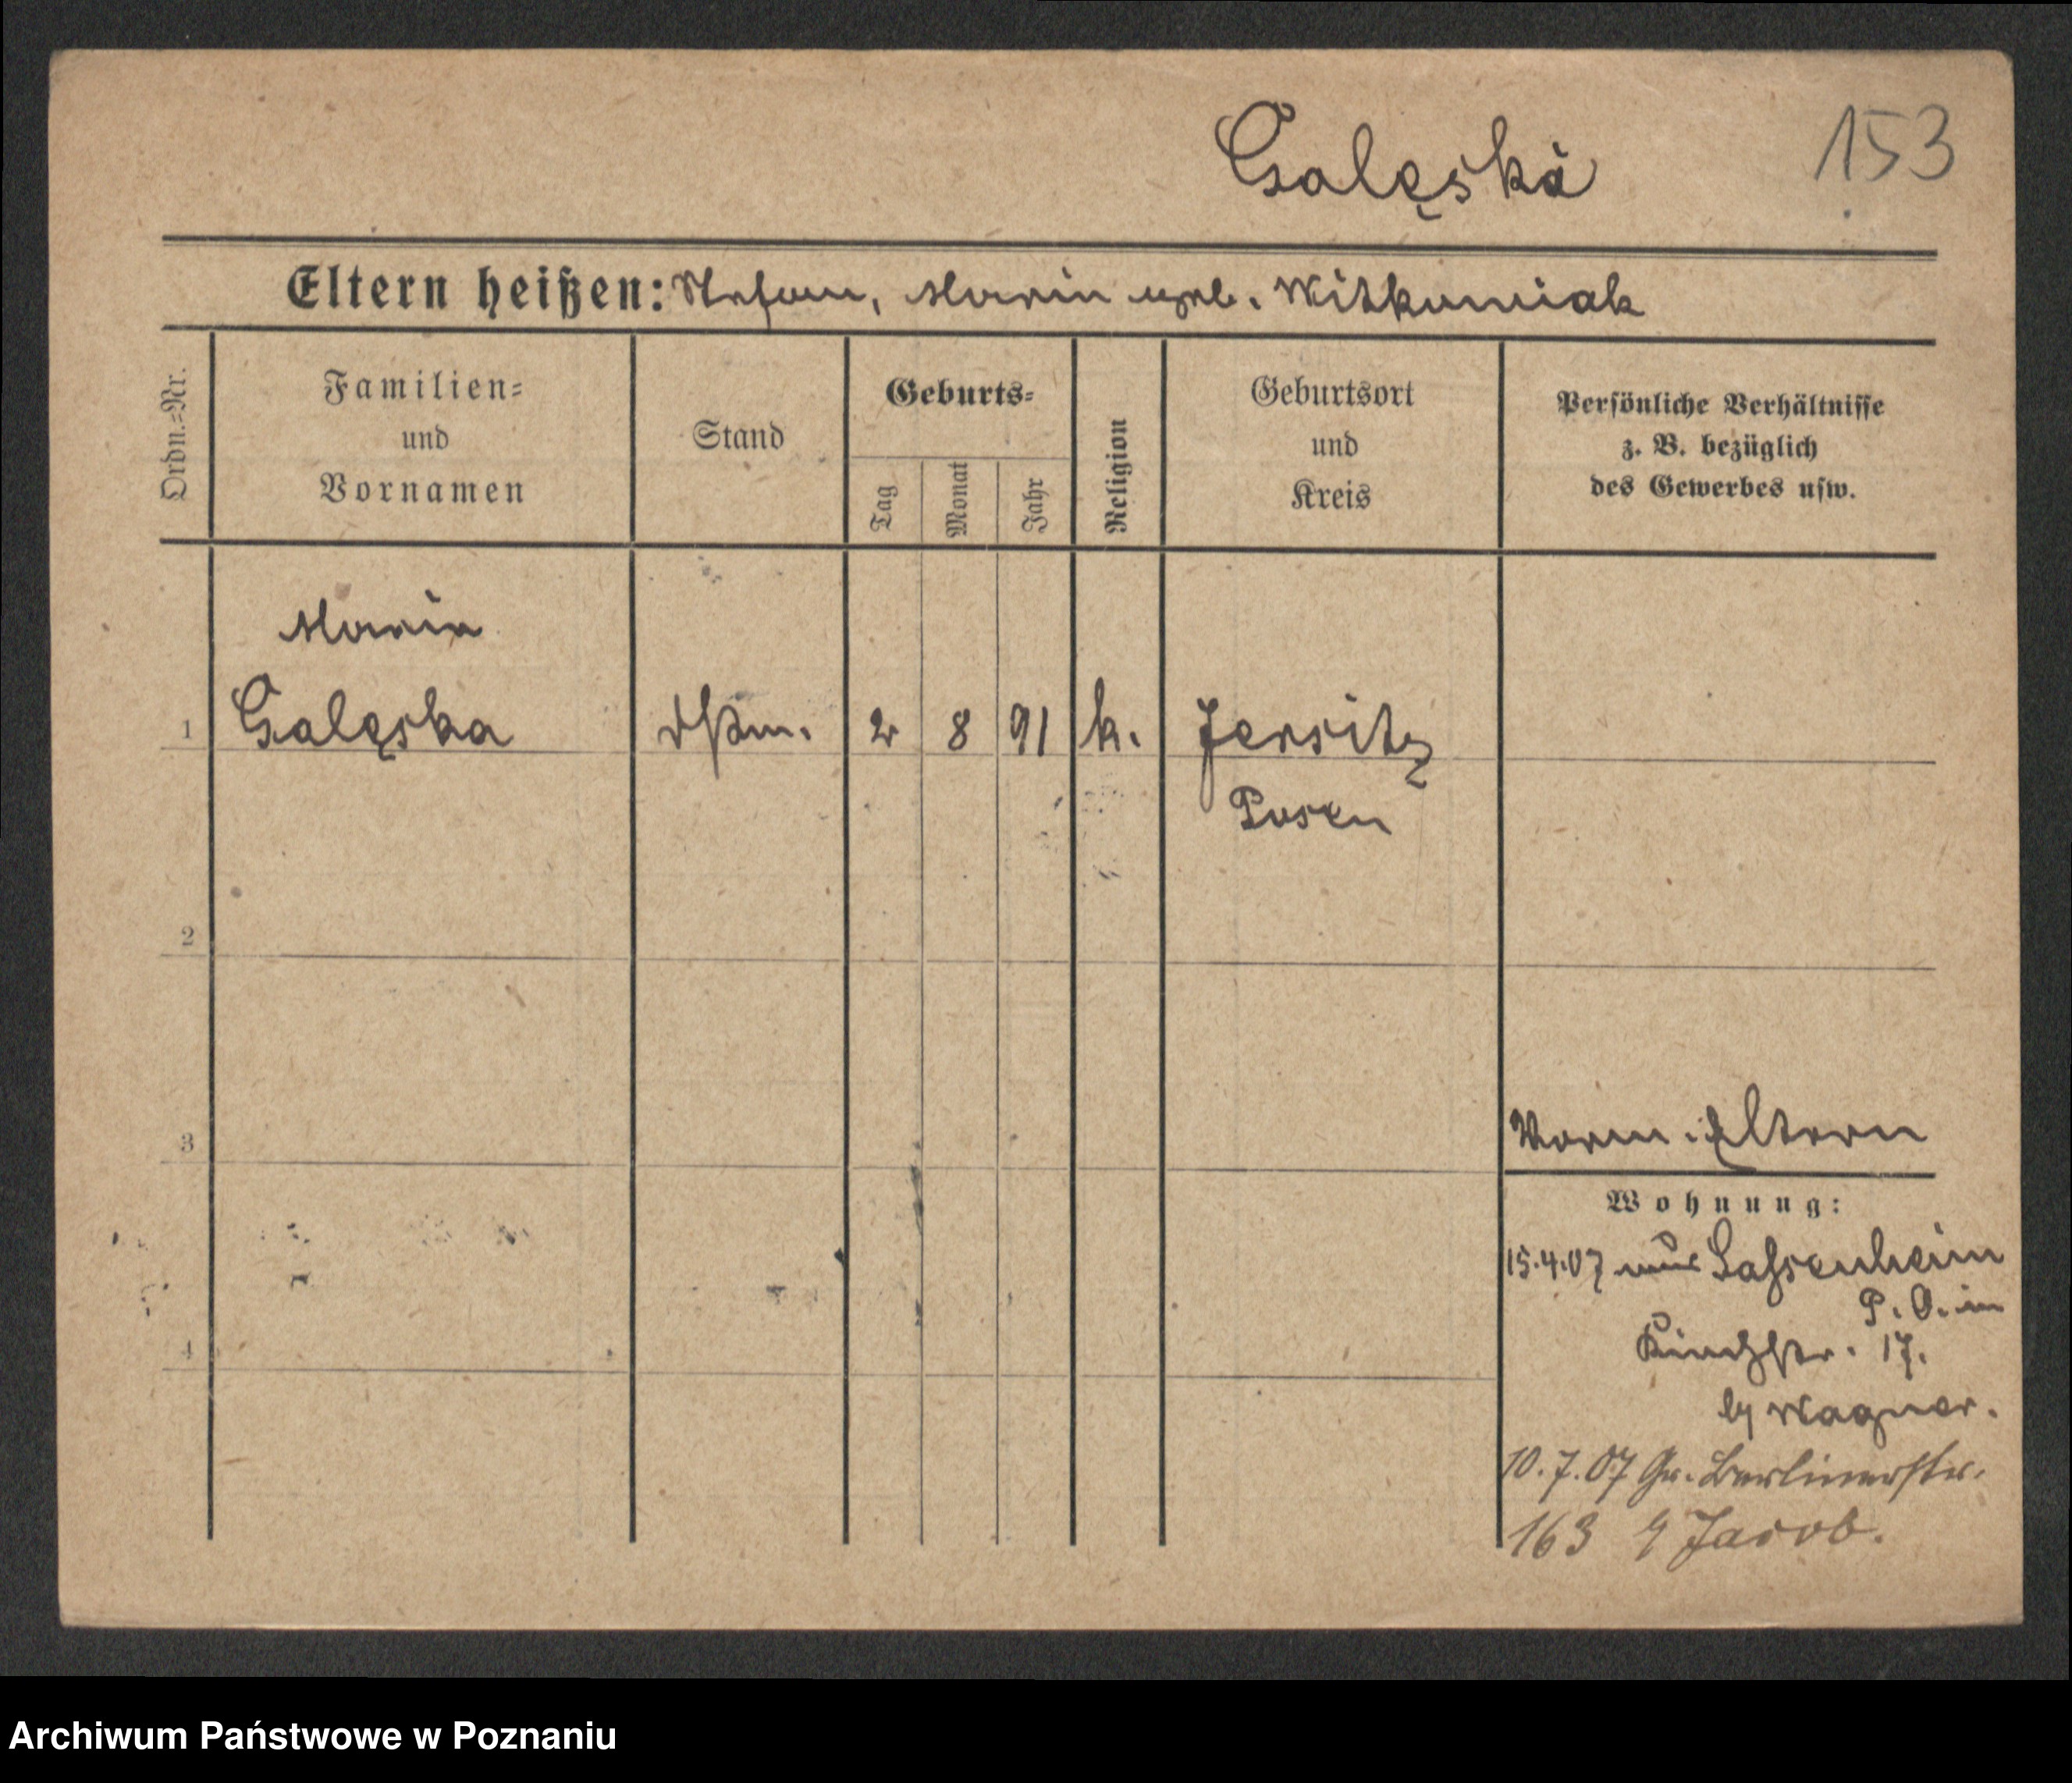 Galęska
153
Eltern heißen: Stefan, Maria geb. Witkowiak
Ordn.=Nr.
Familien=
und
Vornamen
Stand
Geburts=
Tag
Monat
Jahr
Religion
Geburtsort
und
Kreis
Persönliche Verhältnisse
z. B. bezüglich
des Gewerbes usw.
Maria
1 Galęska 2 8 91 k. Jersitz
Posen
2
3
Vorm. Eltern
Wohnung:
15.4.07 aus Lassenheim
P. O. in
4
Kirchstr. 17.
by Wagner.
10.7.07 Gr. Berlinerstr.
163 Jacob.
Archiwum Państwowe w Poznaniu